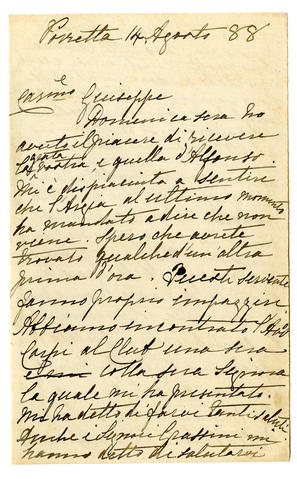 Porretta 14 Agosto 88
Carmo Giuseppe
Domenica sera ho
avuto il piacere di ricevere
la grata vostra, e quella d'Alfonso.
Mi è dispiaciuta a sentire
che l'Argia all'ultimo momento
ha mandato a dire che non
viene. Spero che avrete
trovato qualched'un'altra
prima d'ora. Queste serventi
fanno proprio impazzire
Abbiamo incontrato l'
Carpi al Club una sera
colla sua Signora
la quale mi ha presentato.
Mi ha detto di farvi tanti saluti.
Anche i Signori Grassini mi
hanno detto di salutarvi